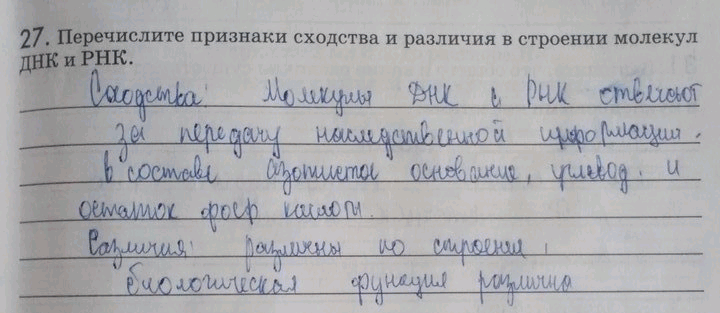 27. Перечислите признаки сходства и различия в строении молекул
ДНК и РНК.
Сходства: Молекулы ДНК и РНК отвечают
за передачу наследственной информации.
в составе азотистое основание, углевод. и
остаток фосф кислоты.
Различия: различны по строения,
биологическая функция различна